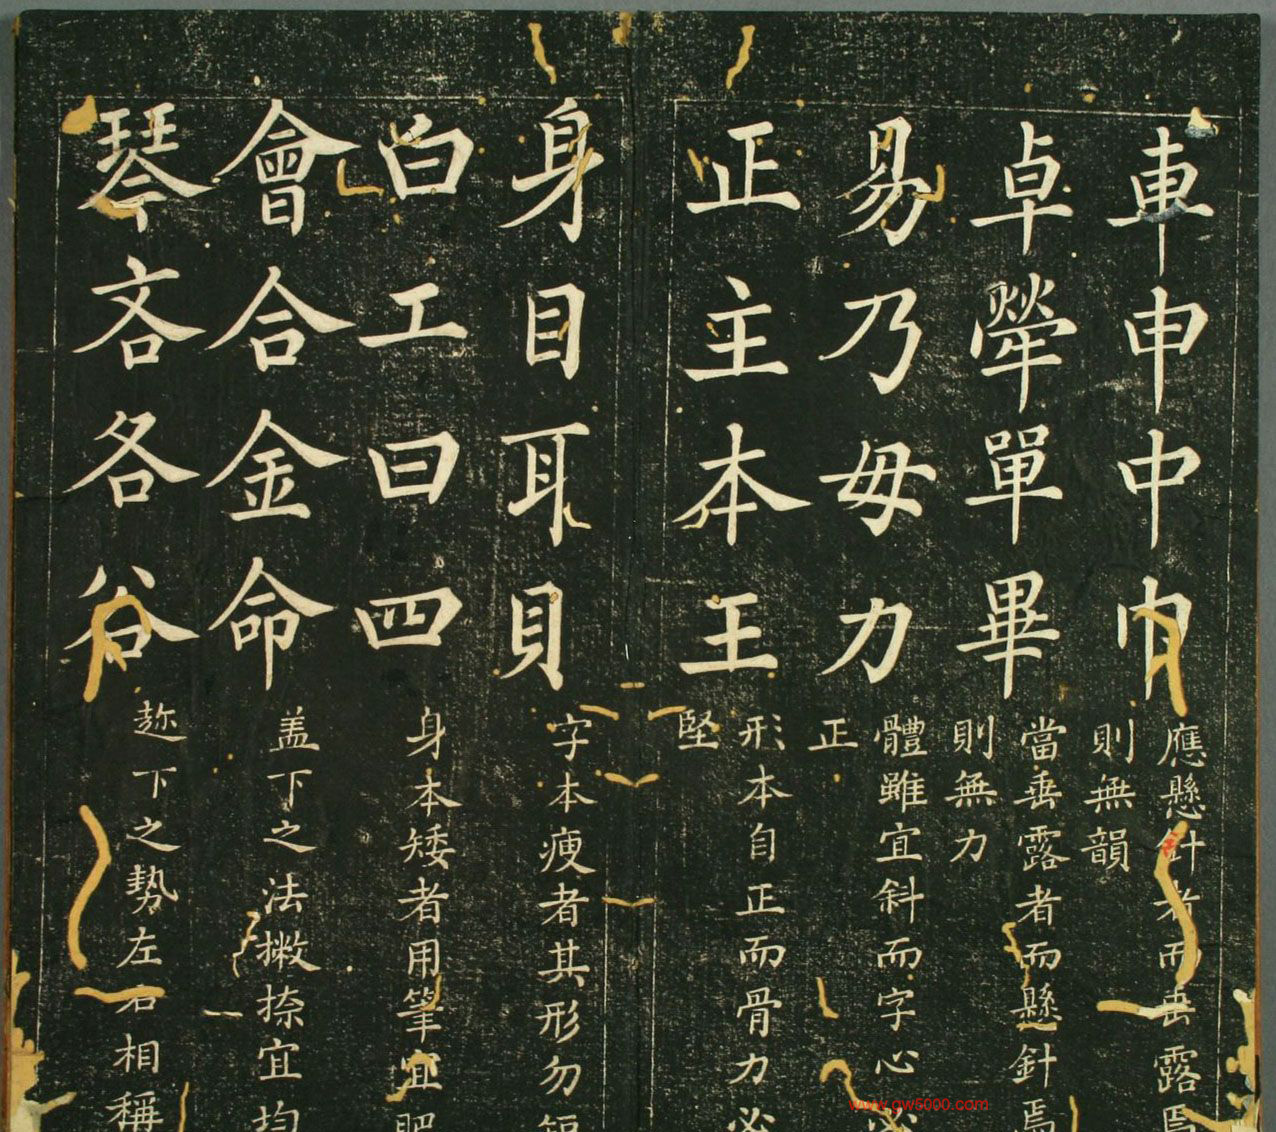 車申中巾
應懸針者而垂露焉
則無韻
卓犖單畢
當垂露者而懸針焉
則無力
易乃毋力
體雖宜斜而字心必
正
正主本王
形本自正而骨力必
堅
身目耳貝
字本瘦者其形勿短
白工曰四
身本矮者用筆宜肥
會合金命
盖下之法撇捺宜均
琴吝各谷
趂下之勢左右相稱
www.gw5000.com